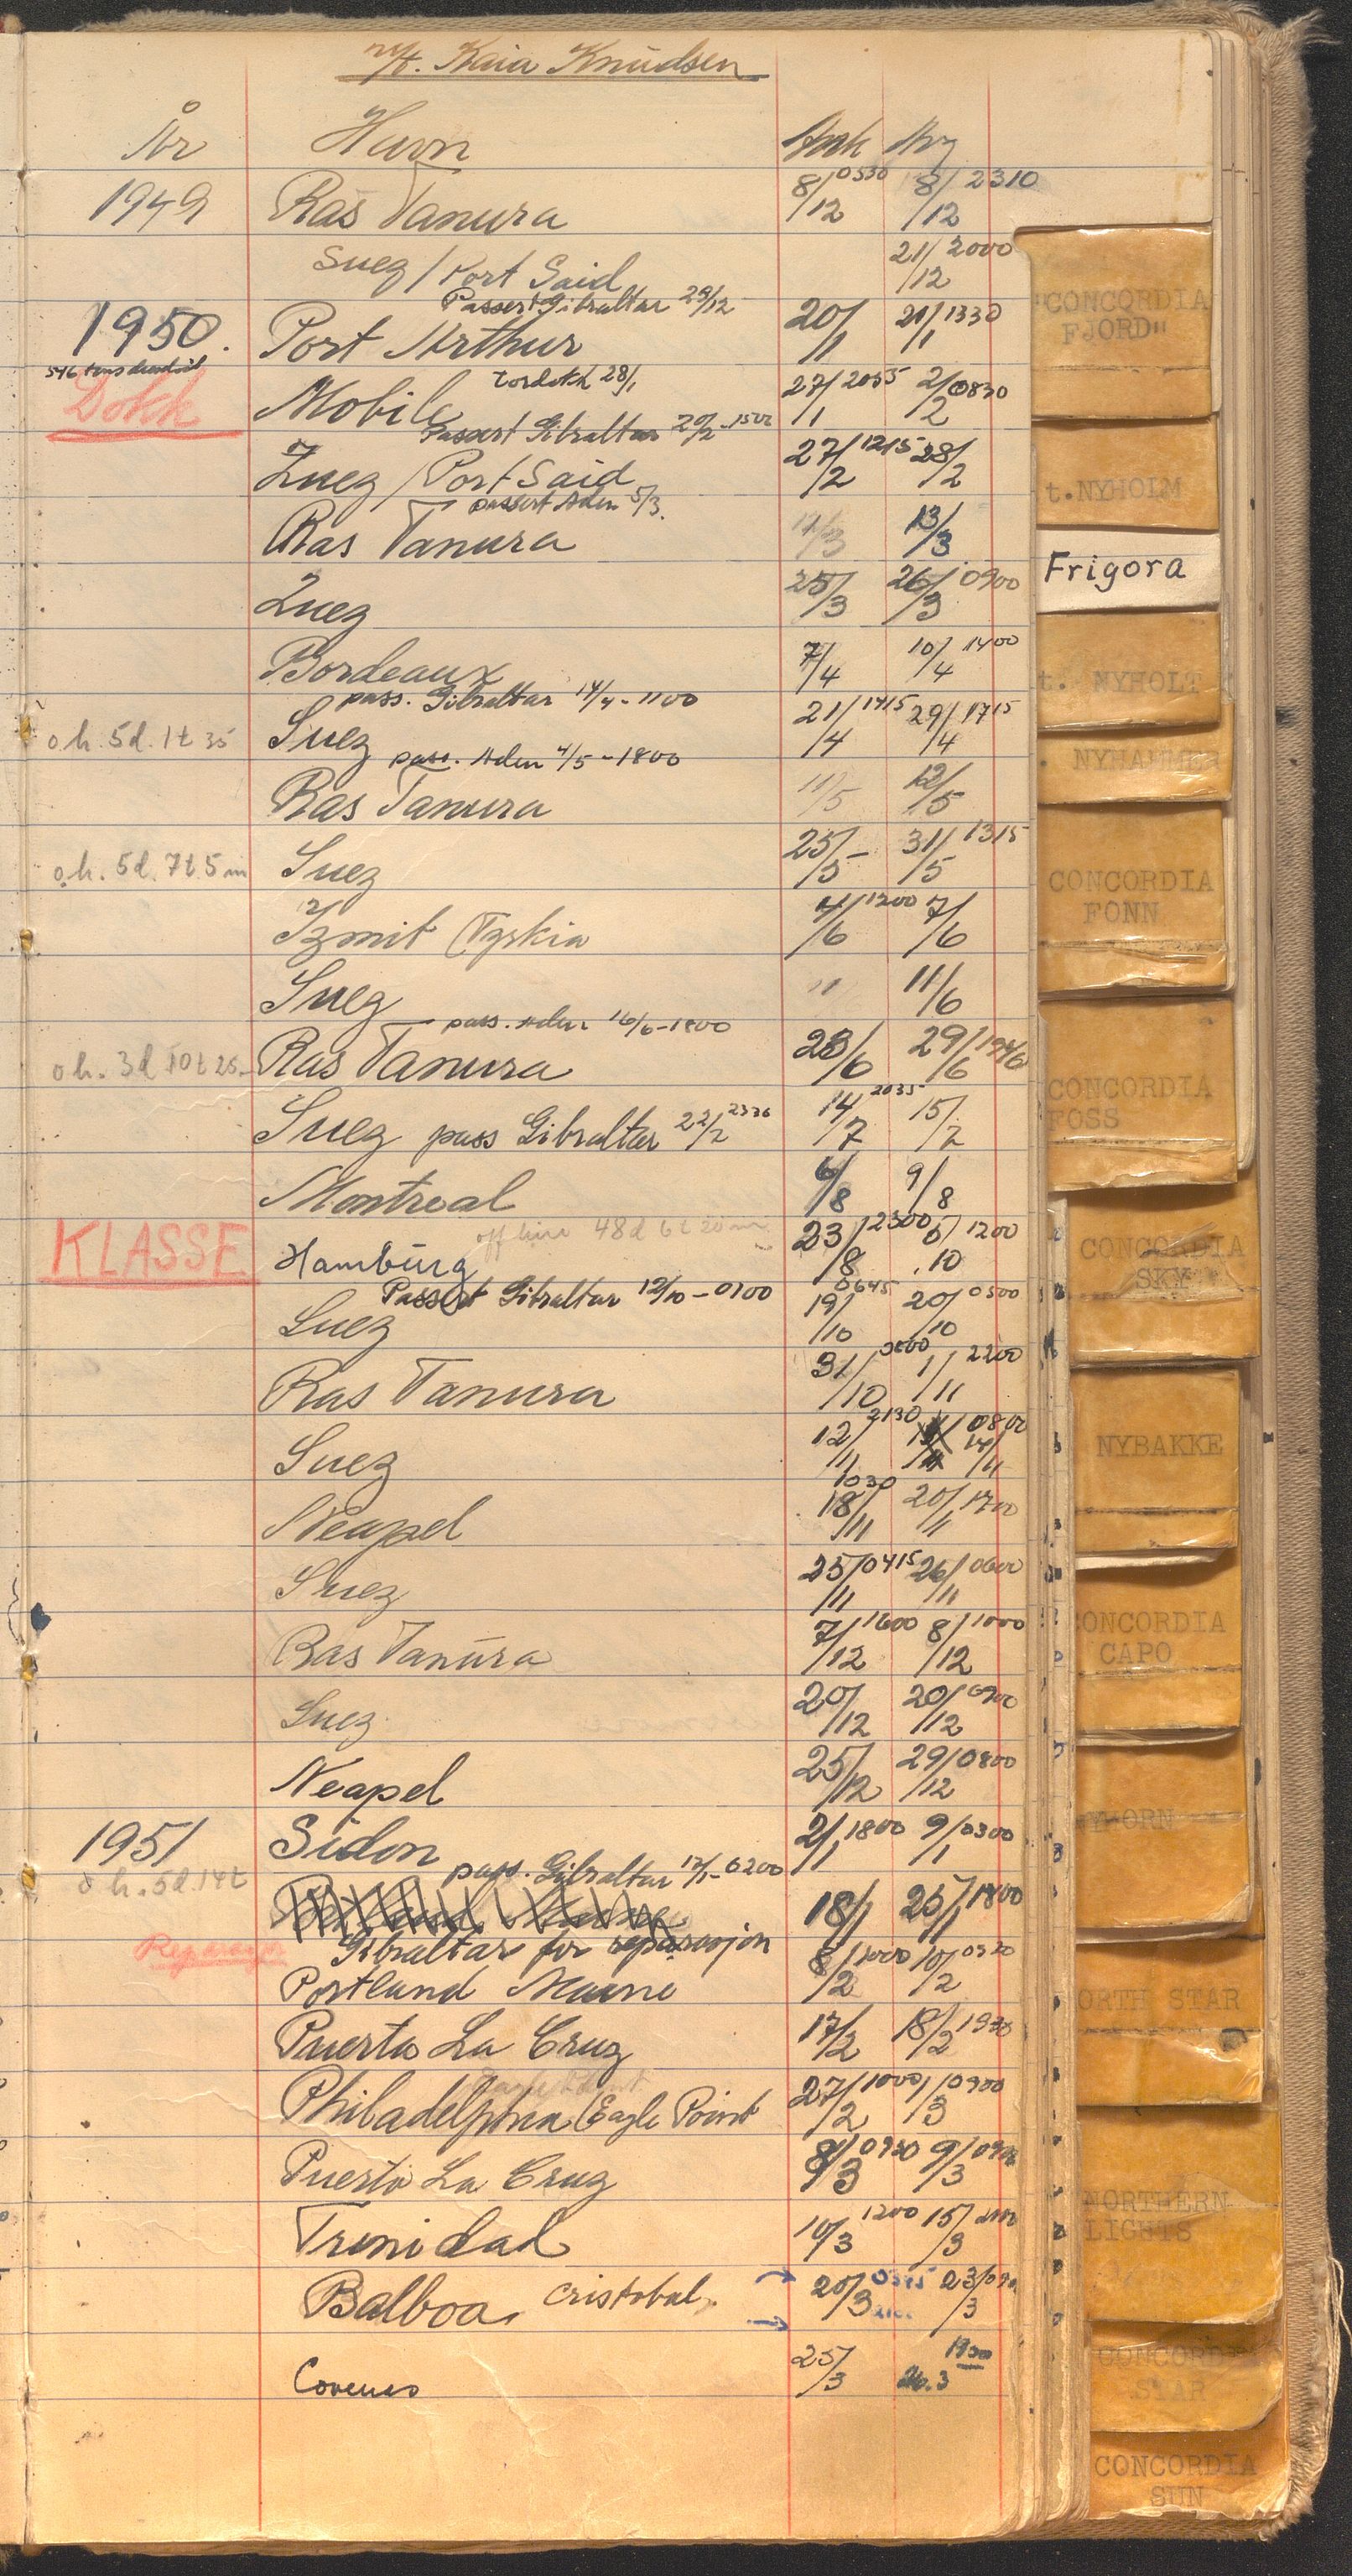 m/t. Kaia Knudsen
År Havn Ank Avg
1949 Ras Tanura 8/12 0530 8/12 2310
Suez / Port Said 21/12 2000
Passert Gibraltar 29/12
1950. Port Arthur 20/1 21/1 1330
546 tons
Dokk Mobile tørdokk 28/1 27/1 2055 2/2 0830
Passert Gibraltar 20/2 - 1500
Zuez / Port Said 27/2 1215 28/2
passert Aden 5/3.
Ras Tanura 12/3 13/3
Zuez 25/3 26/3 0900
Bordeaux 7/4 10/4 1400
pass. Gibraltar 14/4 - 1100
o.h. 5d. 1t 35 Suez 21/4 1415 29/4 1715
pass. Aden 4/5 - 1800
Ras Tanura 11/5 12/5
o.h. 5d. 7t. 5m Suez 25/5 - 31/5 1315
Izmit (Tyrkia 4/6 1200 7/6
Suez 11/6
pass. Aden 16/6 - 1800
o.h. 3d 10t 25 Ras Tanura 23/6 29/6
Suez pass Gibraltar 22/7 2336 14/7 2035 15/7
Montreal 6/8 9/8
KLASSE Hamburg off hire 48d 6t 20m 23/8 2300 6/10 1200
Passert Gibraltar 12/10 - 0100
Suez 19/10 0645 20/10 0500
Ras Tanura 31/10 1/11 2200
Suez 12/11 2130 14/11 0800
Neapel 18/11 1030 20/11 1700
Suez 25/11 0415 26/11 0600
Ras Tanura 7/12 1600 8/12 1000
Suez 20/12 20/12 0900
Neapel 25/12 29/12 0800
1951 Sidon 2/1 1800 9/1 0300
o h. 5d. 14t pass. Gibraltar 17/1 - 0200
18/1 25/1 1800
Reparasjon Gibraltar for reparasjon
Portland Maine 8/2 1000 10/2 0320
Puerto La Cruz 17/2 18/2 1930
Philadelphia (Eagle Point 27/2 1000 1/3 0900
Puerto La Cruz 8/3 0930 9/3
Trinidad 10/3 1200 15/3
Balboa, Cristobal. 20/3 23/3
Covenas 25/3 26.3 1900
"CONCORDIA
FJORD"
t. NYHOLM
Frigora
t. NYHOLT
. NYHAMMER
CONCORDIA
FONN
CONCORDIA
FOSS
CONCORDIA
SKY
NYBAKKE
CONCORDIA
CAPO
ORN
ORTH STAR
NORTHERN
LIGHTS
CONCORDIA
STAR
CONCORDIA
SUN